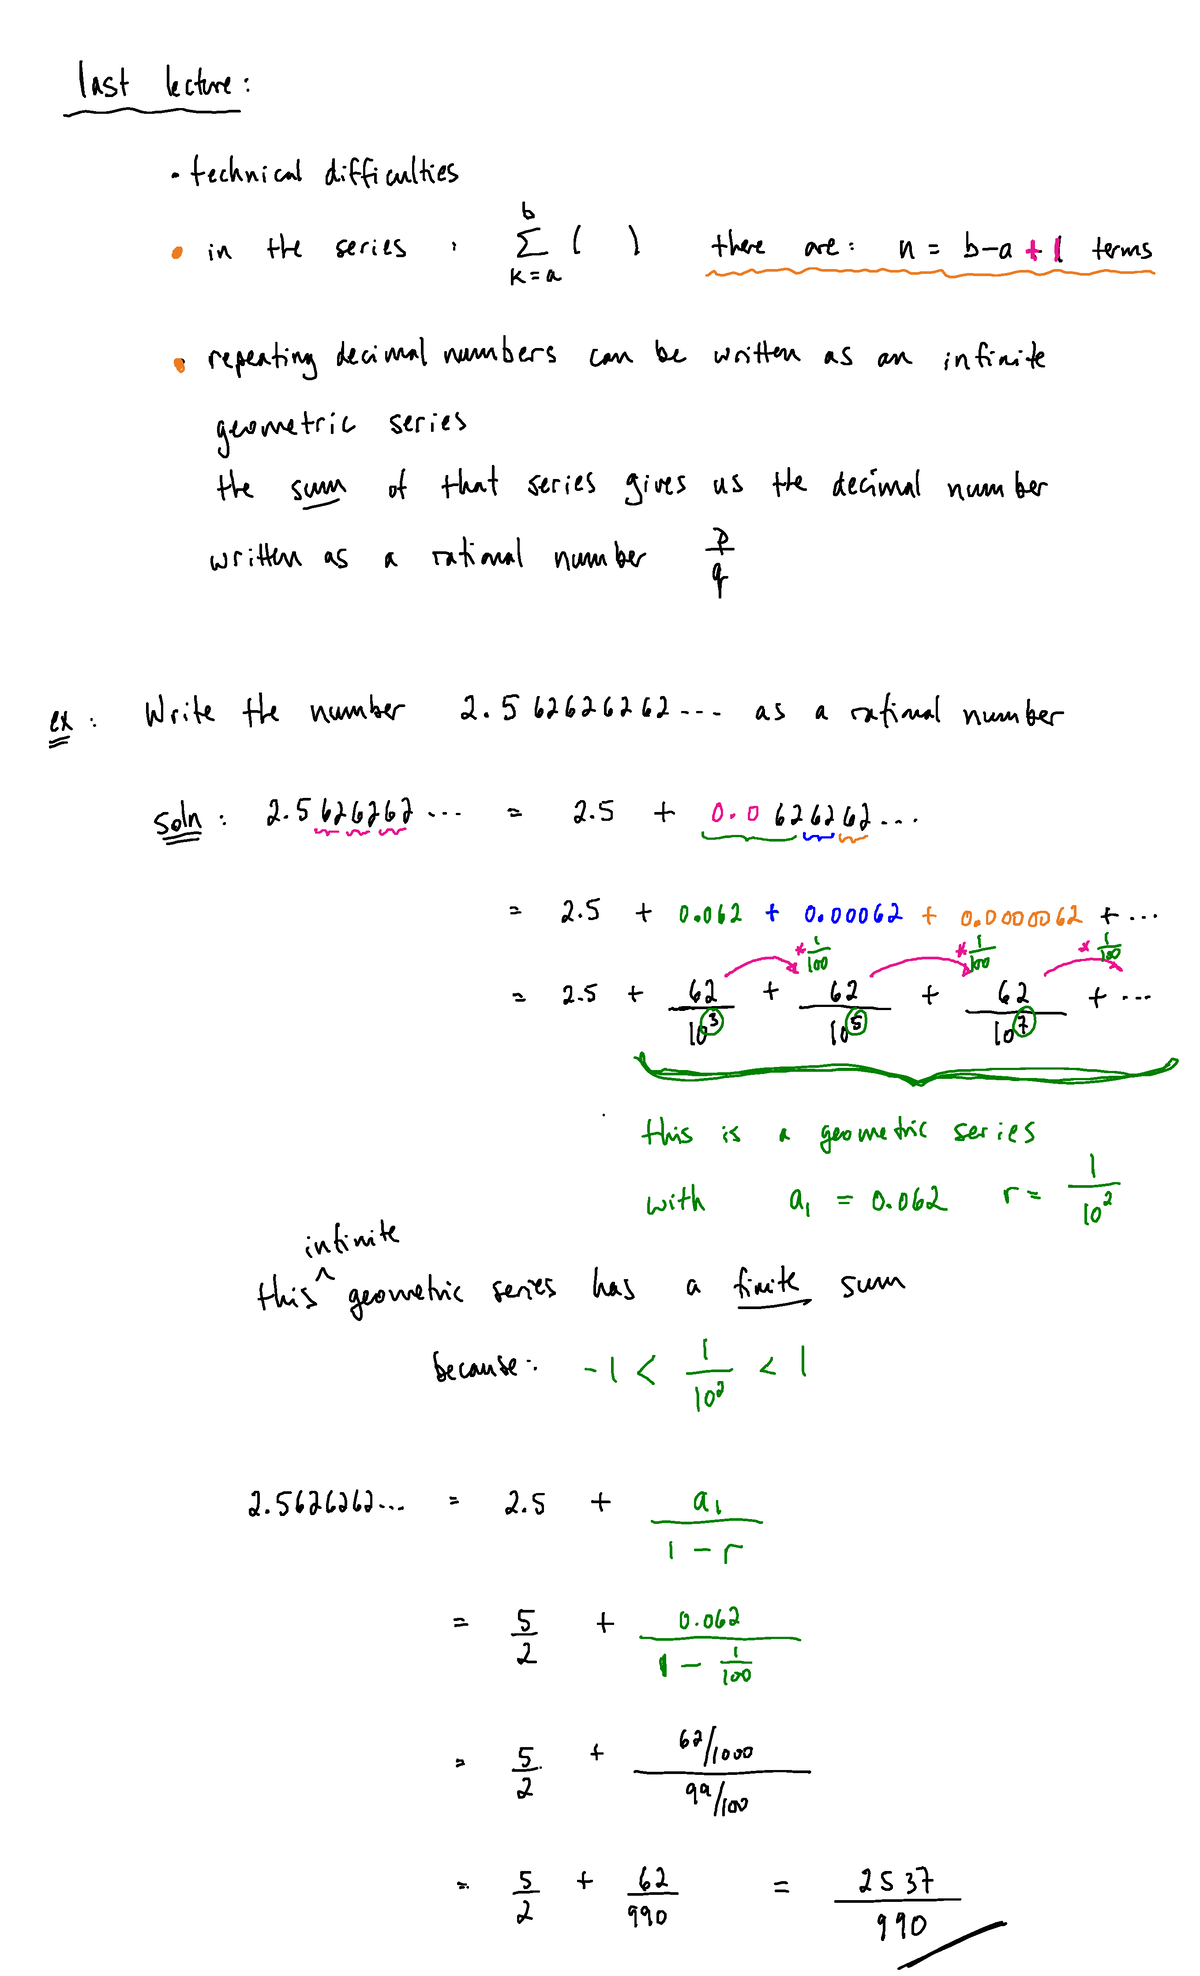 last lecture:
• technical difficulties
• in the series: b ∑ k=a ( ) there are: n = b-a+1 terms
• repeating decimal numbers can be written as an infinite
geometric series
the sum of that series gives us the decimal number
written as a rational number p/q
ex: Write the number 2.562626262... as a rational number
soln: 2.5626262... = 2.5 + 0.0626262...
= 2.5 + 0.062 + 0.00062 + 0.0000062 + ...
*1/100 *1/100 *1/100
= 2.5 + 62/10^3 + 62/10^5 + 62/10^7 + ...
this is a geometric series
with a₁ = 0.062 r = 1/10^2
infinite
this ^ geometric series has a finite sum
because: -1 < 1/10^2 < 1
2.5626262... = 2.5 + a₁/(1-r)
= 5/2 + 0.062/(1 - 1/100)
= 5/2 + (62/1000)/(99/100)
= 5/2 + 62/990 = 2537/990